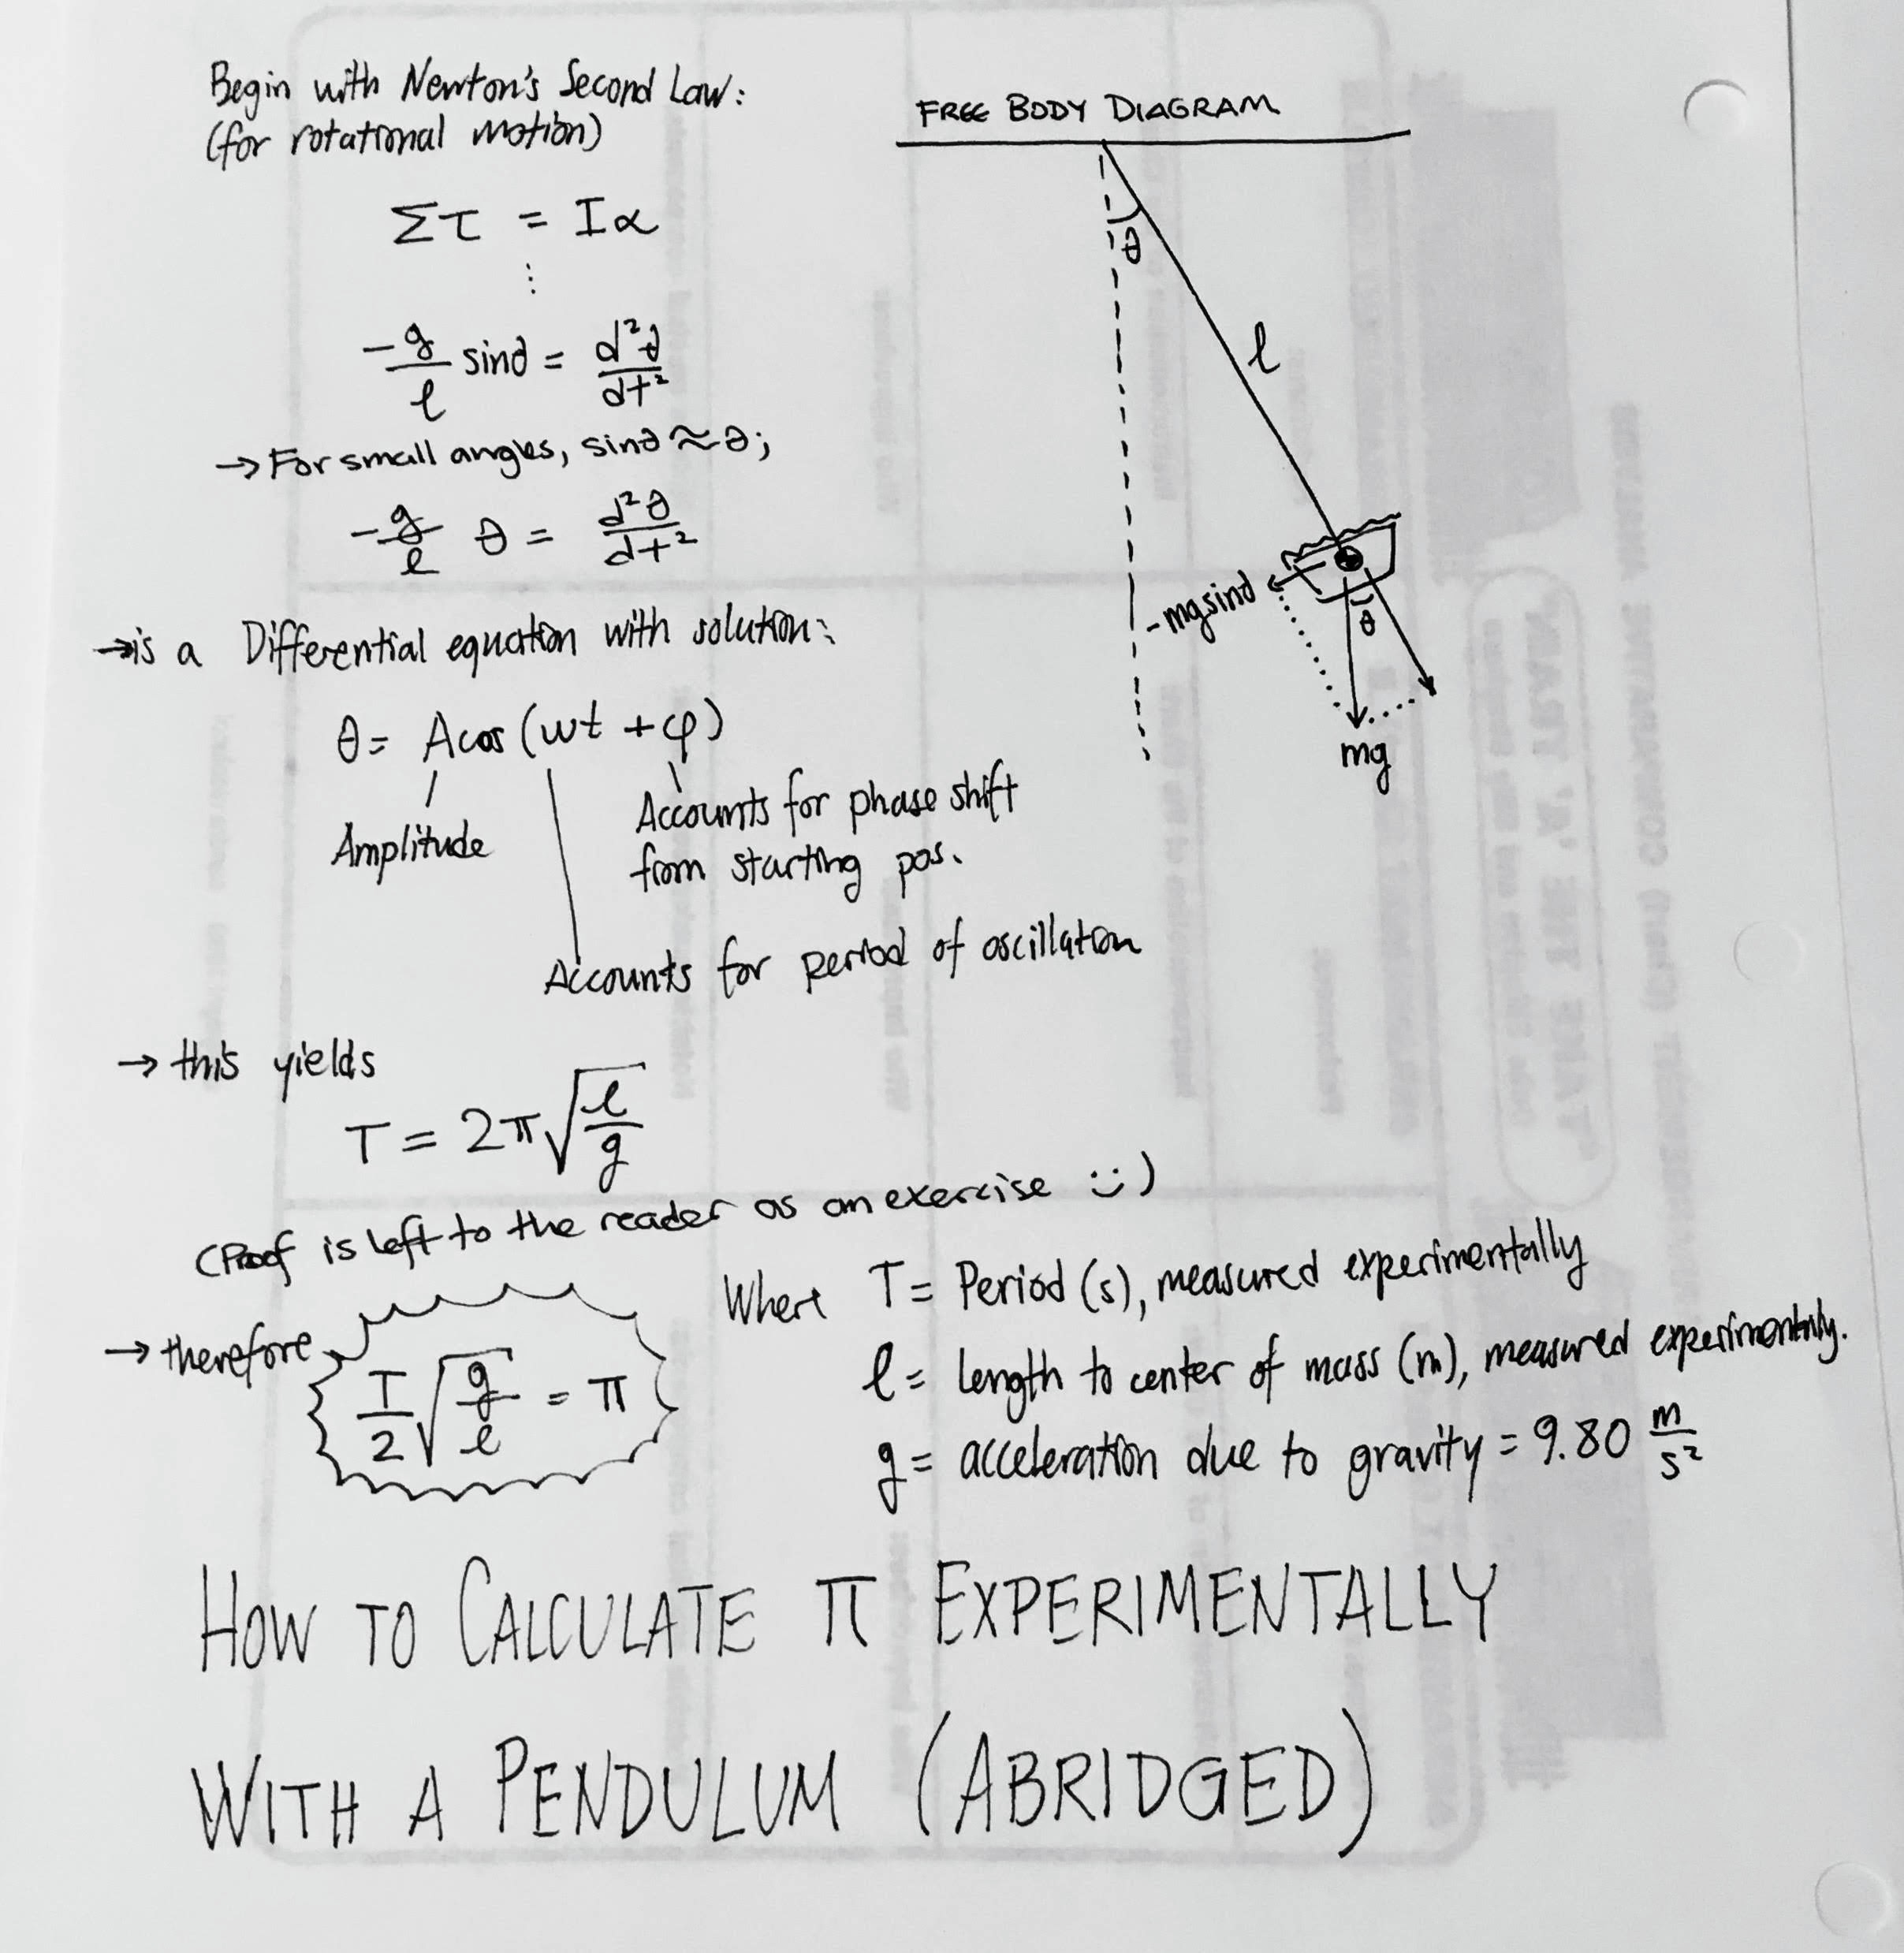 Begin with Newton's Second Law:
(for rotational motion)
Στ = Iα
⋮
-g/l sinθ = d²θ/dt²
→ For small angles, sinθ ≈ θ;
-g/l θ = d²θ/dt²
→ is a Differential equation with solution:
θ = Acos(wt + φ)
Amplitude
Accounts for phase shift
from starting pos.
Accounts for period of oscillation
→ this yields
T = 2π√(l/g)
(Proof is left to the reader as an exercise :))
→ therefore
T/2 √(g/l) = π
Where T = Period (s), measured experimentally
l = length to center of mass (m), measured experimentally.
g = acceleration due to gravity = 9.80 m/s²
FREE BODY DIAGRAM
θ
l
-mgsinθ
θ
mg
HOW TO CALCULATE π EXPERIMENTALLY
WITH A PENDULUM (ABRIDGED)
"TAKE THE 'A' TRAIN"
(Chart) COMPARATIVE ANALYSIS